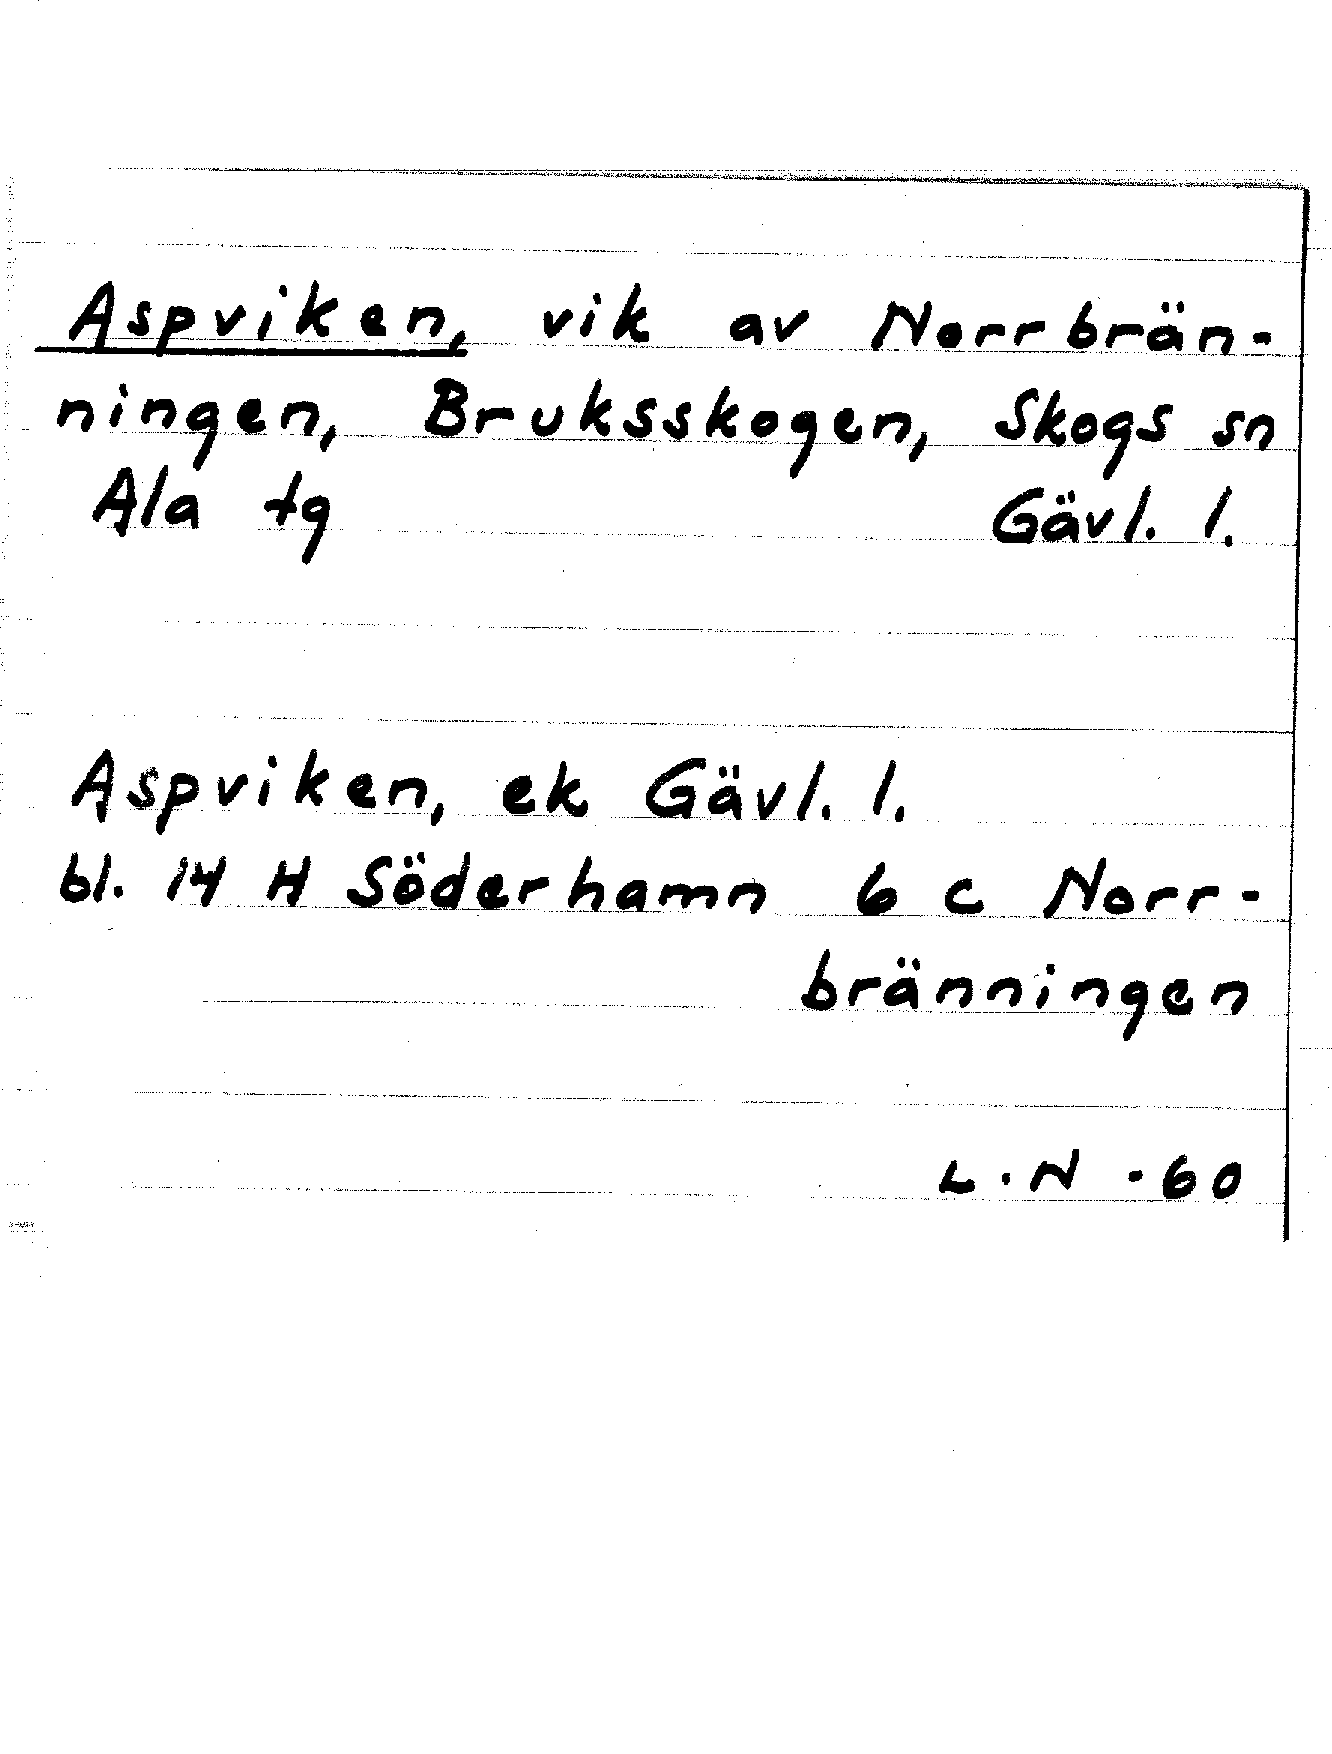 Aspviken, vik av Norrbrän-
ningen, Bruksskogen, Skogs sn
Ala tg Gävl. l.
Aspviken, ek Gävl. l.
bl. 14 H Söderhamn 6 c Norr-
bränningen
L. N -60